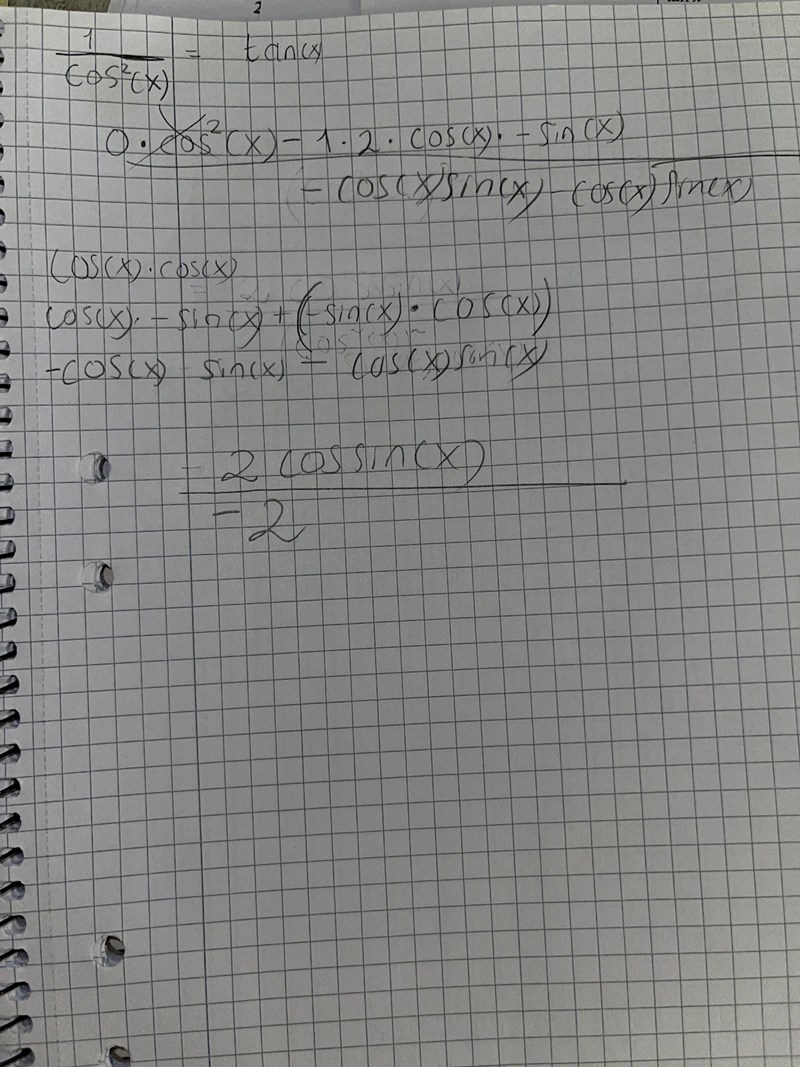 2
1
cos²(x) = tan(x)
0 · cos²(x) - 1 · 2 · cos(x) · - sin(x)
- cos(x) sin(x) - cos(x) sin(x)
cos(x) · cos(x)
cos(x) · - sin(x) + (-sin(x) · cos(x))
-cos(x) sin(x) - cos(x) sin(x)
2 cos sin(x)
- 2